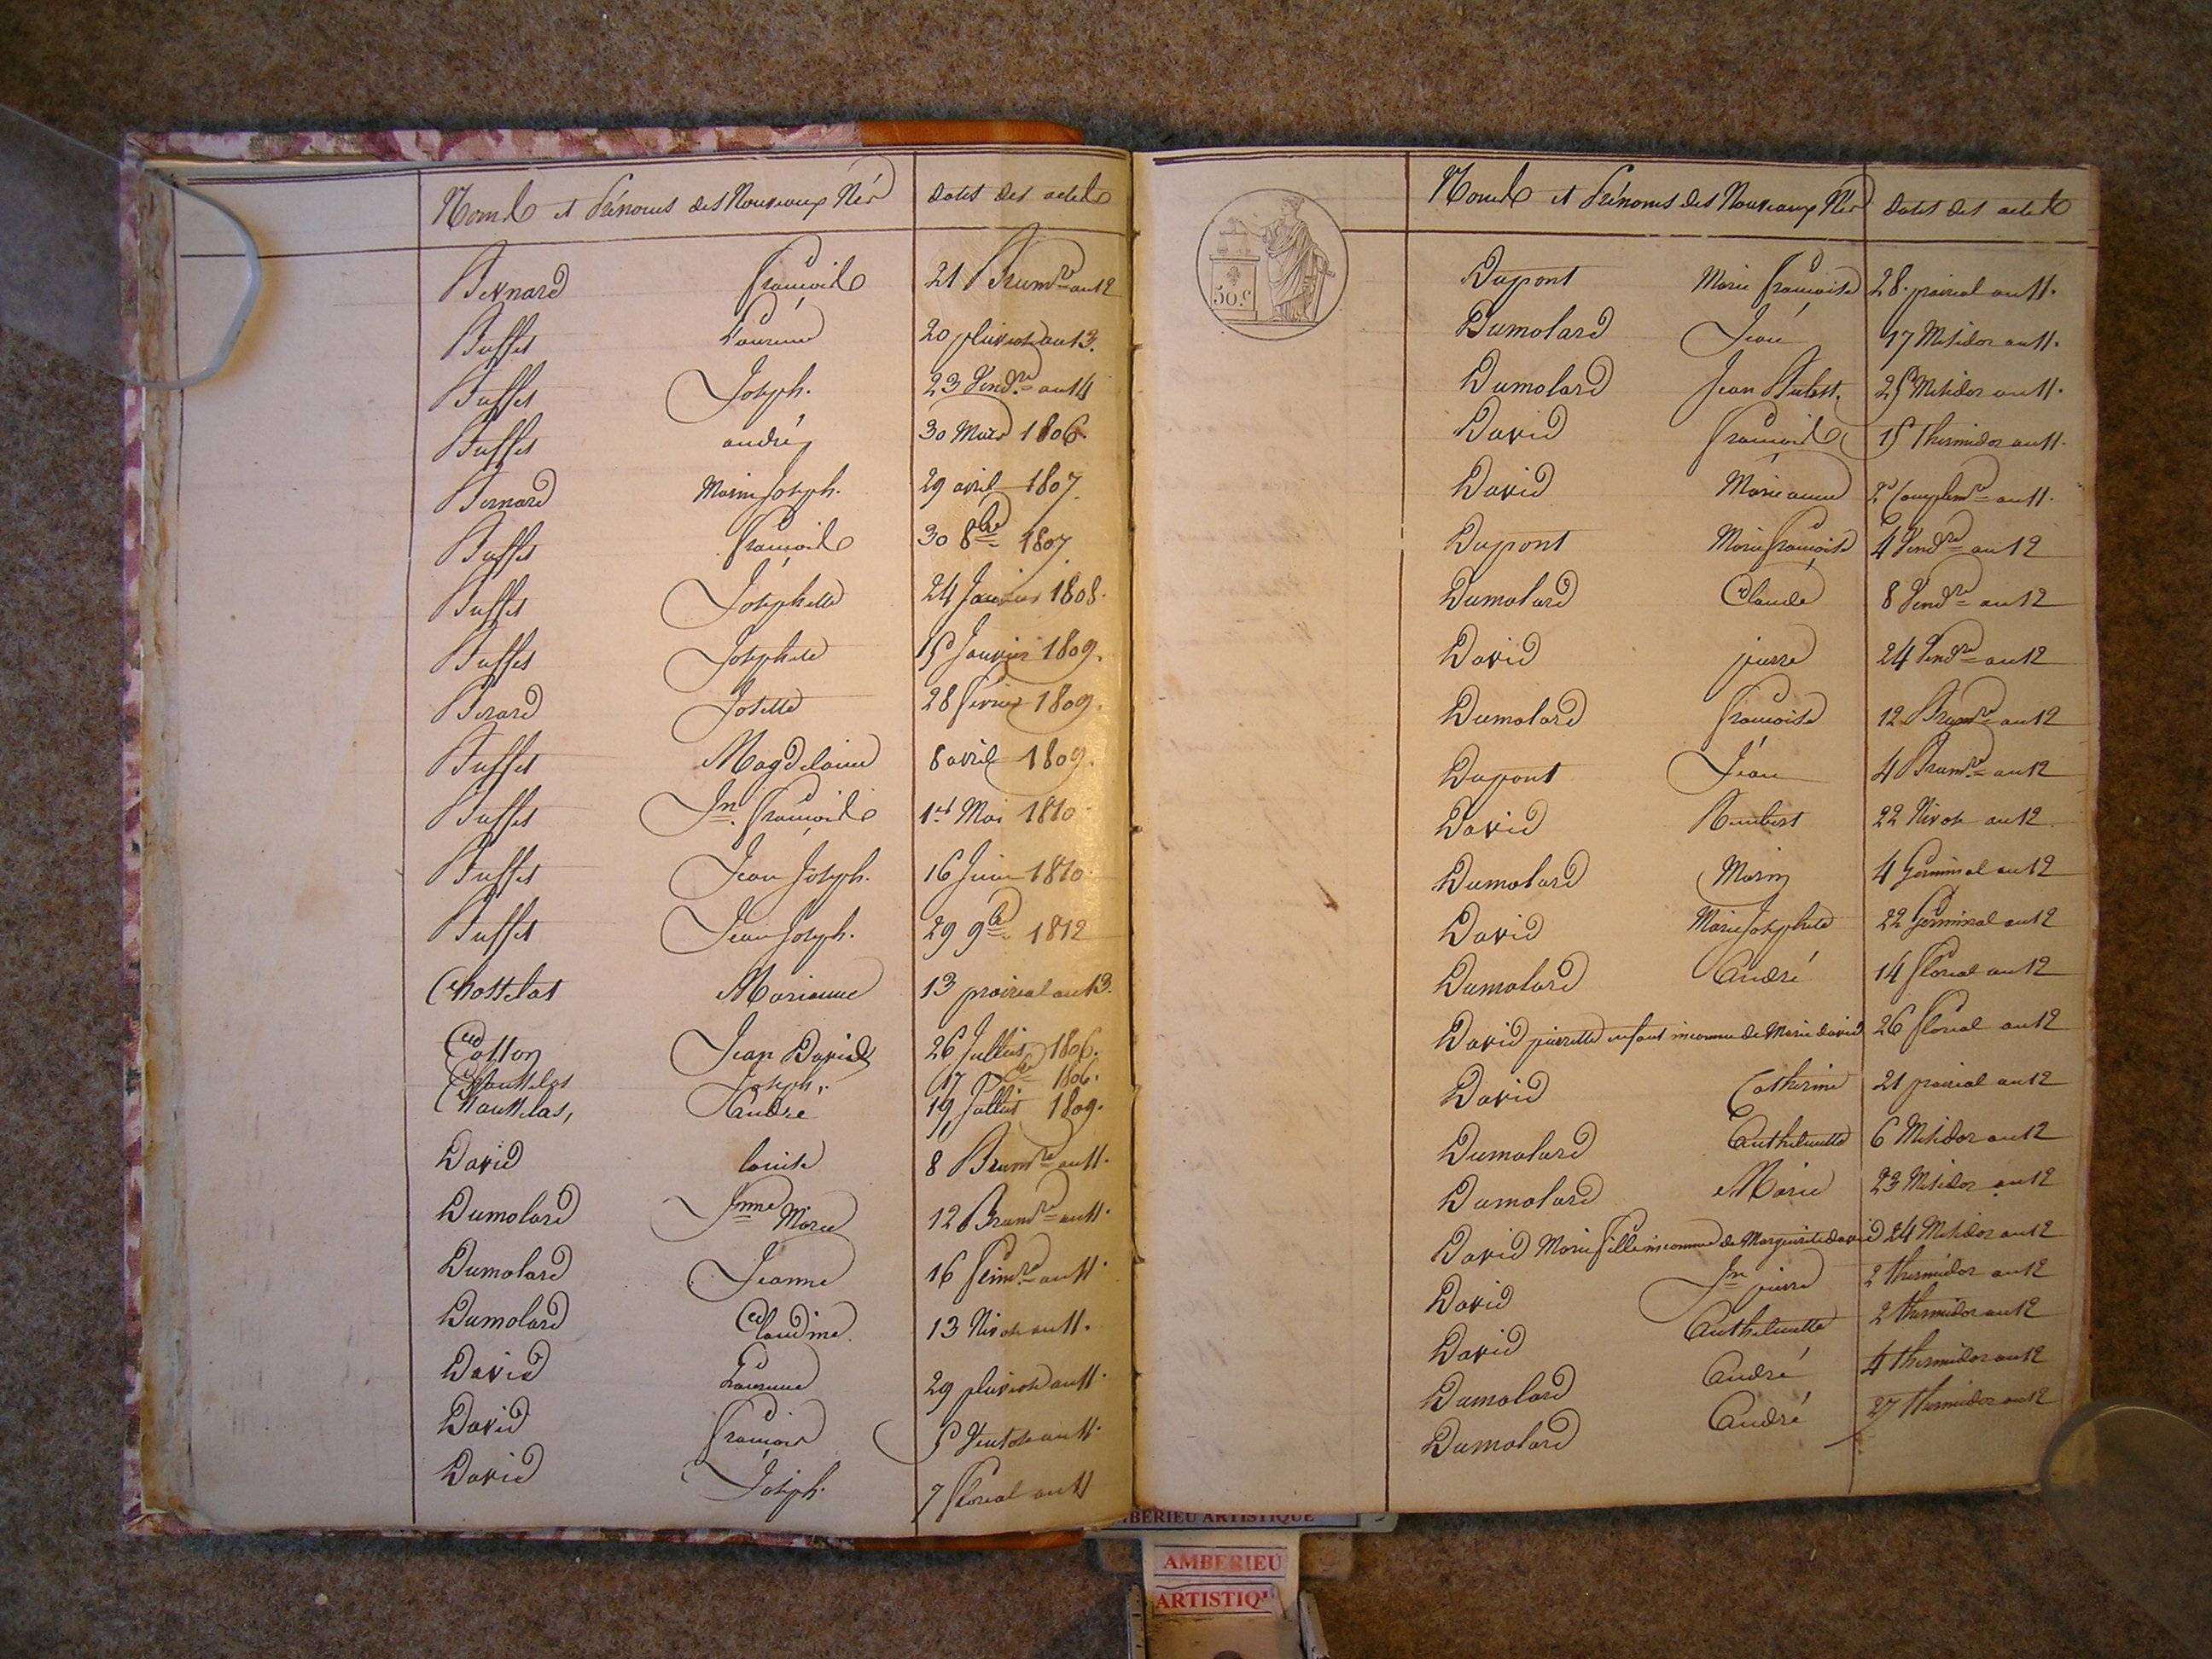 Noms et Prénoms des Nouveaux Nés dates des actes
Bernard François 21 Brum.re an 12
Buffet Laurence 20 pluviose an 13.
Buffet Joseph. 23 Vend.re an 14
Buffet andré 30 Mars 1806.
Bernard Marie Joseph. 29 avril 1807.
Buffet François 30 8bre 1807.
Buffet Josephette 24 Janvier 1808.
Buffet Josephete 15 Janvier 1809.
Berard Josette 28 février 1809.
Buffet Magdelaine 8 avril 1809.
Buffet Jn. François 1er Mai 1810
Buffet Jean Joseph. 16 Juin 1810.
Buffet Jean Joseph. 29 9bre 1812
Chosselat Marianne 13 prairial an 13.
Cotton Jean David 26 Julliet 1806.
Chausselas Joseph. 17 1806.
Chausselas, André 19 Julliet 1809.
David louise 8 Brum.re an 11.
Dumolard Jnne Marie 12 Brum.re an 11.
Dumolard Jeanne 16 frim.re an 11.
Dumolard Claudine. 13 Nivose an 11.
David Laurence 29 pluviose an 11.
David François 5 Ventose an 11.
David Joseph. 7 floreal an 11
50.c
Noms et Prénoms des Nouveaux Nés dates des actes
Dupont Marie françoise 28. prairial an 11.
Dumolard Jean 17 Messidor an 11.
Dumolard Jean 25 Messidor an 11.
David François 15 Thermidor an 11.
David Marie anne 2e Complem.re an 11.
Dupont Marie françoise 4 Vend.re an 12
Dumolard Claude 8 Vend.re an 12
David pierre 24 Vend.re an 12
Dumolard françoise 12 Brum.re an 12
Dupont Jean 4 Brum.re an 12
David Rambert 22 Nivose an 12
Dumolard Marin 4 Germinal an 12
David Marie Josephete 22 Germinal an 12
Dumolard André 14 floreal an 12
David pierrette enfant inconnu de Marie david 26 floreal an 12
David Catherine 21 prairial an 12
Dumolard Anthelmette 6 Messidor an 12
Dumolard Marie 23 Messidor an 12
David Marie fille inconnue de Marguerite david 24 Messidor an 12
David Jn pierre 2 thermidor an 12
David Anthelmette 2 thermidor an 12
Dumolard André 4 thermidor an 12
Dumolard André 27 thermidor an 12
AMBERIEU ARTISTIQUE
AMBERIEU
ARTISTIQU